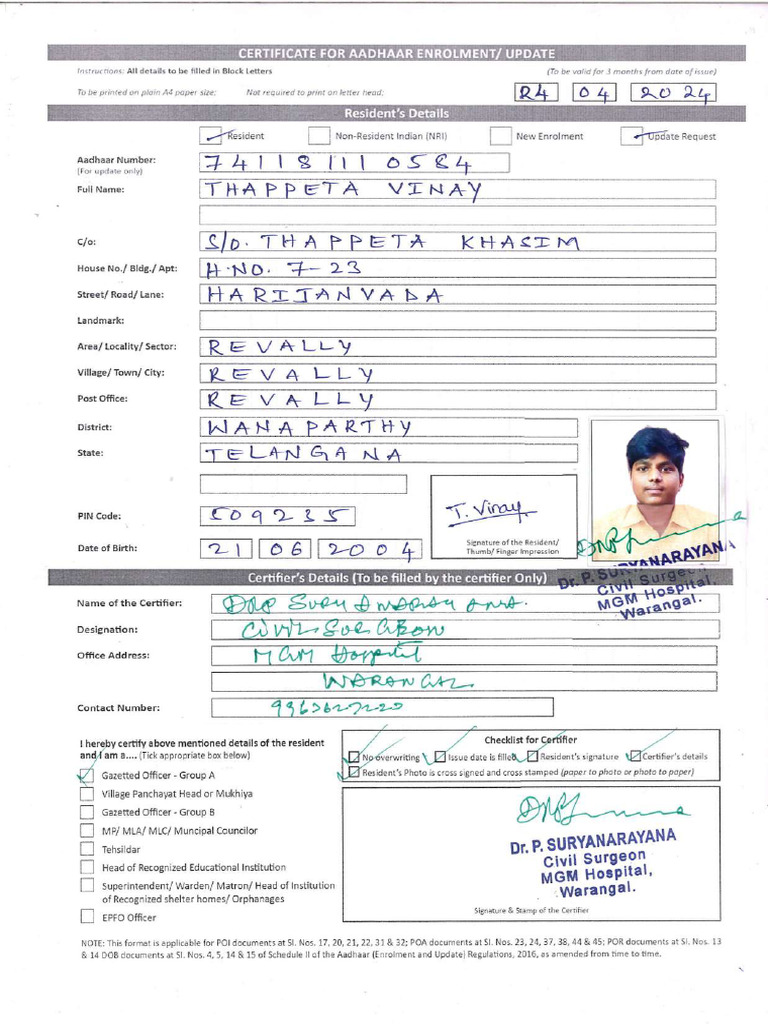 CERTIFICATE FOR AADHAAR ENROLMENT/ UPDATE
Instructions: All details to be filled in Block Letters (To be valid for 3 months from date of issue)
To be printed on plain A4 paper size; Not required to print on letter head; 24 04 2024
Resident's Details
Resident Non-Resident Indian (NRI) New Enrolment Update Request
Aadhaar Number: 741181110584
(For update only)
Full Name: THAPPETA VINAY
C/o: S/O. THAPPETA KHASIM
House No./ Bldg./ Apt: H.NO. 7-23
Street/ Road/ Lane: HARIJANVADA
Landmark:
Area/ Locality/ Sector: REVALLY
Village/ Town/ City: REVALLY
Post Office: REVALLY
District: WANAPARTHY
State: TELANGANA
PIN Code: 509235
T. Vinay
Signature of the Resident/
Thumb/ Finger Impression
Date of Birth: 21 06 2004
Dr. P. SURYANARAYANA
Civil Surgeon
MGM Hospital,
Warangal.
Certifier's Details (To be filled by the certifier Only)
Name of the Certifier:
Designation: CIVIL SURGEON
Office Address: MGM Hospital
WARANGAL
Contact Number:
I hereby certify above mentioned details of the resident
and I am a.... (Tick appropriate box below)
Checklist for Certifier
No overwriting Issue date is filled Resident's signature Certifier's details
Resident's Photo is cross signed and cross stamped (paper to photo or photo to paper)
Gazetted Officer - Group A
Village Panchayat Head or Mukhiya
Gazetted Officer - Group B
MP/ MLA/ MLC/ Muncipal Councilor
Tehsildar
Head of Recognized Educational Institution
Superintendent/ Warden/ Matron/ Head of Institution
of Recognized shelter homes/ Orphanages
EPFO Officer
Dr. P. SURYANARAYANA
Civil Surgeon
MGM Hospital,
Warangal.
Signature & Stamp of the Certifier
NOTE: This format is applicable for POI documents at Sl. Nos. 17, 20, 21, 22, 31 & 32; POA documents at Sl. Nos. 23, 24, 37, 38, 44 & 45; POR documents at Sl. Nos. 13
& 14 DOB documents at Sl. Nos. 4, 5, 14 & 15 of Schedule II of the Aadhaar (Enrolment and Update) Regulations, 2016, as amended from time to time.